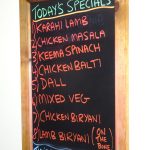 TODAY'S SPECIALS
1 KARAHI LAMB
2 CHICKEN MASALA
3 KEEMA SPINACH
4 CHICKEN BALTI
5 DALL
6 MIXED VEG
7 CHICKEN BIRYANI
8 LAMB BIRYANI (ON THE BONE)